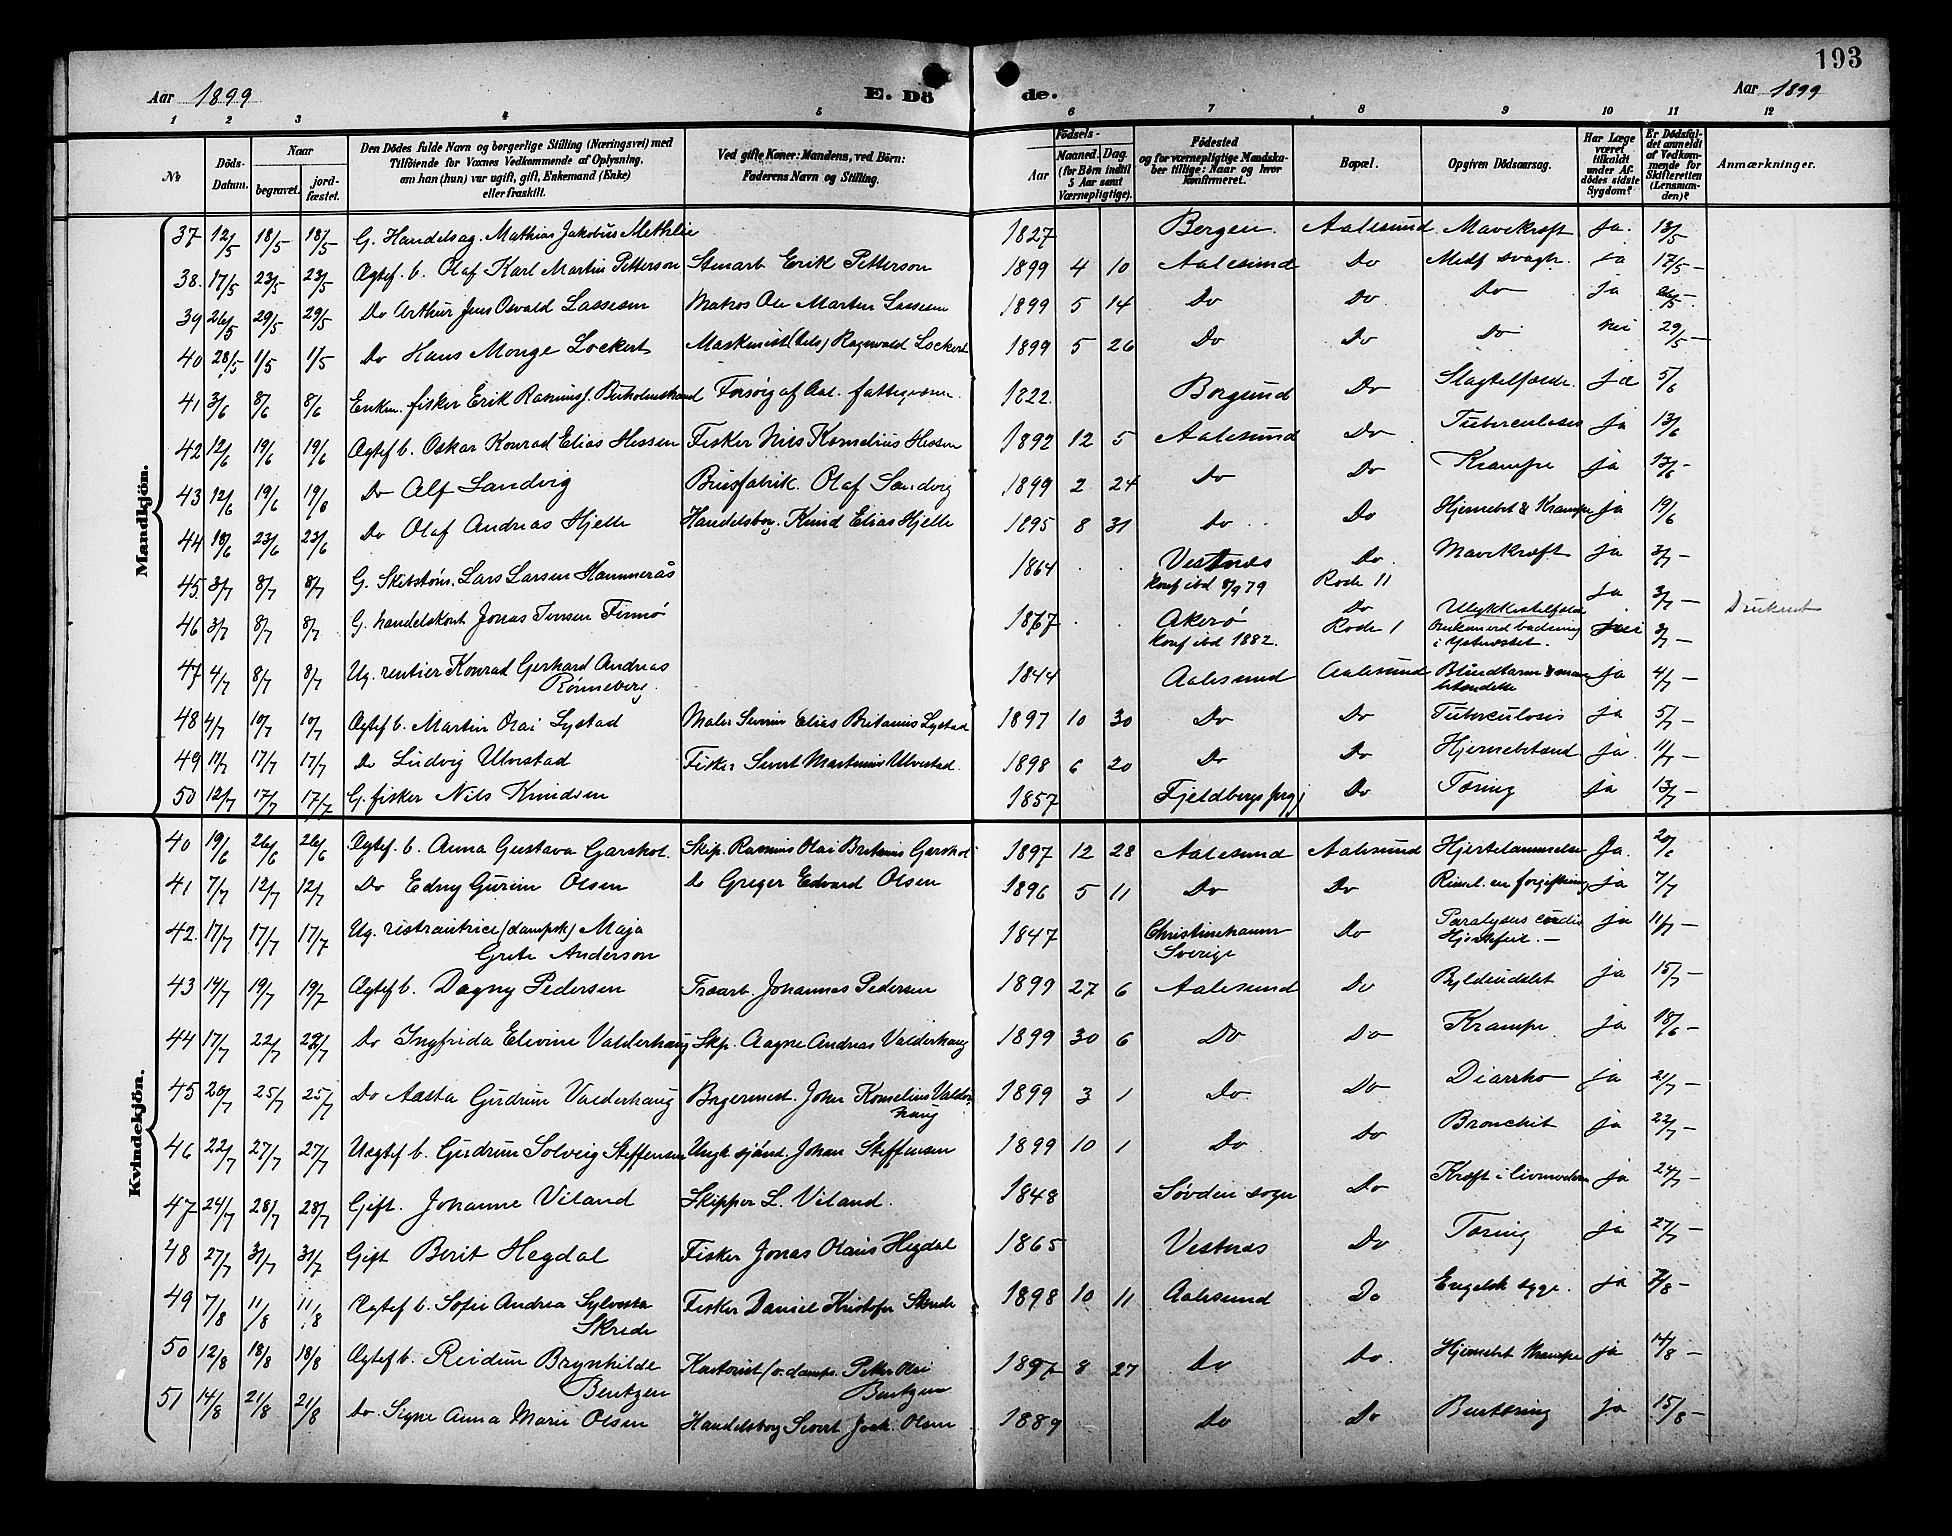 193
Aar 1899 E. Dö de. Aar 1899
1 2 3 4 5 6 7 8 9 10 11 12
No
Döds-Datum.
Naar
begravet.
jord-fæstet.
Den Dödes fulde Navn og borgerlige Stilling (Næringsvei) med
Tilföiende for Voxnes Vedkommende af Oplysning,
om han (hun) var ugift, gift, Enkemand (Enke)
eller fraskilt.
Ved gifte Koner: Mandens, ved Börn:
Faderens Navn og Stilling.
Födsels-
Aar
Maaned. Dag.
(for Börn indtil
5 Aar samt
Værnepligtige).
Födested
og for værnepligtige Mandska-
ber tillige: Naar og hvor
konfirmeret.
Bopæl.
Opgiven Dödsaarsag.
Har Læge
været
tilkaldt
under Af-
dödes sidste
Sygdom?
Er Dödsfal-
det anmeldt
af Vedkom-
mende for
Skifteretten
(Lensman-
den)?
Anmærkninger.
Mandkjön.
37 12/5 18/5 18/5 G. Handelsag. Mathias Jakobus Methlie 1827 Bergen. Aalesund Mavekræft Ja. 13/5
38. 17/5 23/5 23/5 Ægtef. b. Olaf Karl Martin Petterson Stuart Erik Petterson 1899 4 10 Aalesund Do Medf svagh. ja 17/5 –
39 26/5 29/5 29/5 Do Arthur Jens Osvald Lassesen Matros Ole Martin Lassesen 1899 5 14 Do Do Do Ja 26/5 –
40 28/5 1/5 1/5 Do Hans Monge Lockert Maskinist (dels) Ragnvald Lockert 1899 5 26 Do Do Do Nei 29/5 –
41 3/6 8/6 8/6 Enkm. fisker Erik Rasmus J. Forsörg af Aal. fattigvæsen 1822 Borgund Do Slagtilfælde. ja 5/6
42 12/6 19/6 19/6 Ægtef b. Oskar Konrad Elias Hessen Fisker Nils Kornelius Hessen 1892 12 5 Aalesund Do Tuberculosis Ja 13/6
43 12/6 19/6 19/6 Do Alf Sandvig Brusfabrik. Olaf Sandvig 1899 2 24 Do Do Krampe ja 13/6 –
44 19/6 23/6 23/6 Do Olaf Andreas Hjelle Handelsbor. Knud Elias Hjelle 1895 8 31 Do Do Hjernebet & Krampe Ja 19/6
45. 3/7 8/7 8/7 G. Skibstöm. Lars Larsen Hammerås 1864 Vestnes Do. Mavekræft ja 3/7 –
konf ibd 8/9 79 Rode 11
46 3/7 8/7 8/7 G. handelskont Jonas Jensen Finnö 1867 Akerö Do Ulykkestilfælde Ja 3/7 – Druknet
konf ibd 1882. Rode 1 Druknet ved badning nei 3/7 –
i
47 4/7 8/7 8/7 Ug. rentier Konrad Gerhard Andreas 1844 Aalesund Aalesund Blindtarm ja 4/7 –
Rönneberg. betændelse
48 4/7 10/7 10/7 Ægtef b. Martin Olai Lystad Maler Severin Elias Britanus Lystad 1897 10 30 Do Do Tuberculosis Ja 5/7 –
49 11/7 17/7 17/7 Do Ludvig Ulvestad Fisker Sivert Martinus Ulvestad. 1898 6 20 Do Do Hjernebetænd Ja. 11/7 –
50 12/7 17/7 17/7 G. fisker Nils Knudsen 1857 Fjeldbergs prgj Do Tæring ja 13/7 –
Kvindekjön.
40 19/6 26/6 26/6 Ægtef. b. Anna Gustava Garshol. Skip. Rasmus Olai Britanus Garshol 1897 12 28 Aalesund Aalesund Hjertelammelse Ja. 20/6
41 7/7 12/7 12/7 Do Edny Gurine Olsen Do Greger Edvard Olsen 1896 5 11 Do Do forgiftning Ja 7/7
42. 17/7 17/7 17/7 Ug. restrautrice (dampsk) Maja 1847 Christinehamn Do Paralysis cordis ja 11/7 –
Grete Anderson Sverige Hjertefeil. –
43 14/7 19/7 19/7 Ægtef b. Dagny Pedersen Træarb. Johannes Pedersen 1899 27 6 Aalesund Do Byldeudslet ja 15/7 –
44 17/7 22/7 22/7 Do Ingfrida Elevine Valderhaug Skp. Aagne Andreas Valderhaug 1899 30 6 Do Do Krampe. Ja 18/6 –
45 20/7 25/7 25/7 Do Aasta Gudrun Valderhaug Borgermest. Johan Kornelius Valder- 1899 3 1 Do. Do Diarrho ja 21/7 –
haug
46 22/7 27/7 27/7 Uægtef b. Gudrun Solveig Steffensen Ungk sjömd. Johan Steffensen 1899 10 1 Do Do Bronchit ja 22/7 –
47 24/7 28/7 28/7 Gift. Johanne Viland Skipper L. Viland. 1848 Sövden sogn Do Kræft i livmoderen ja 24/7 –
48 27/7 31/7 31/7 Gift Berit Hegdal Fisker Jonas Olaus Hegdal 1865 Vestnes Do Tæring Ja 27/7 –
49 7/8 11/8 11/8 Ægtef b. Sofie Andrea Sylvesta Fisker Daniel Kristofer Skrede 1898 10 11 Aalesund Do Engelsk syge. ja 7/8 –
Skrede
50 12/8 18/8 18/8 Ægtef b. Reidun Brynhilde (v. dampsk. Peter Olai 1897 8 27 Do Do. Hjernebet Krampe ja 14/8 –
Bentzen Bentzen
51 14/8 21/8 21/8 Do. Signe Anna Marie Olsen Handelsborg Sivert Joch. Olsen 1889 Do Do Bentæring Ja 15/8 –